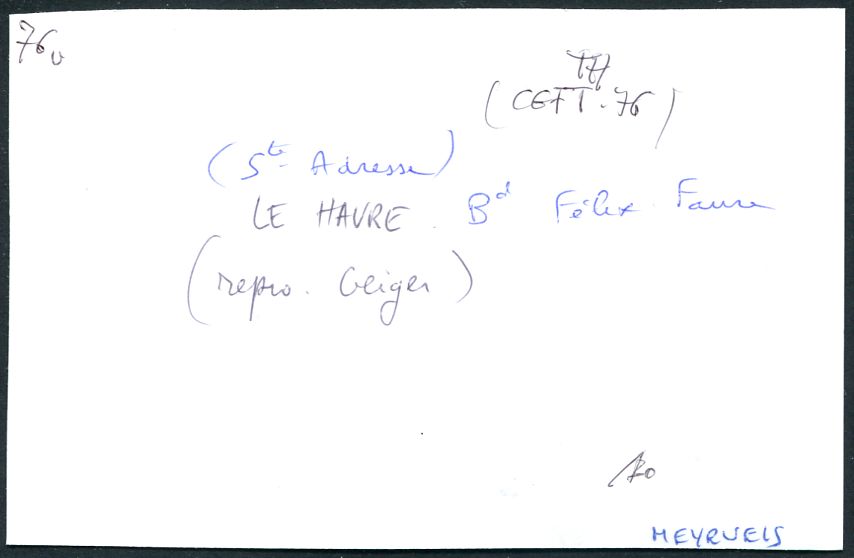 76
(CEFT. 76)
(Ste Adresse)
LE HAVRE. Bd Félix Faure
(repro. Geiger)
MEYRUEIS